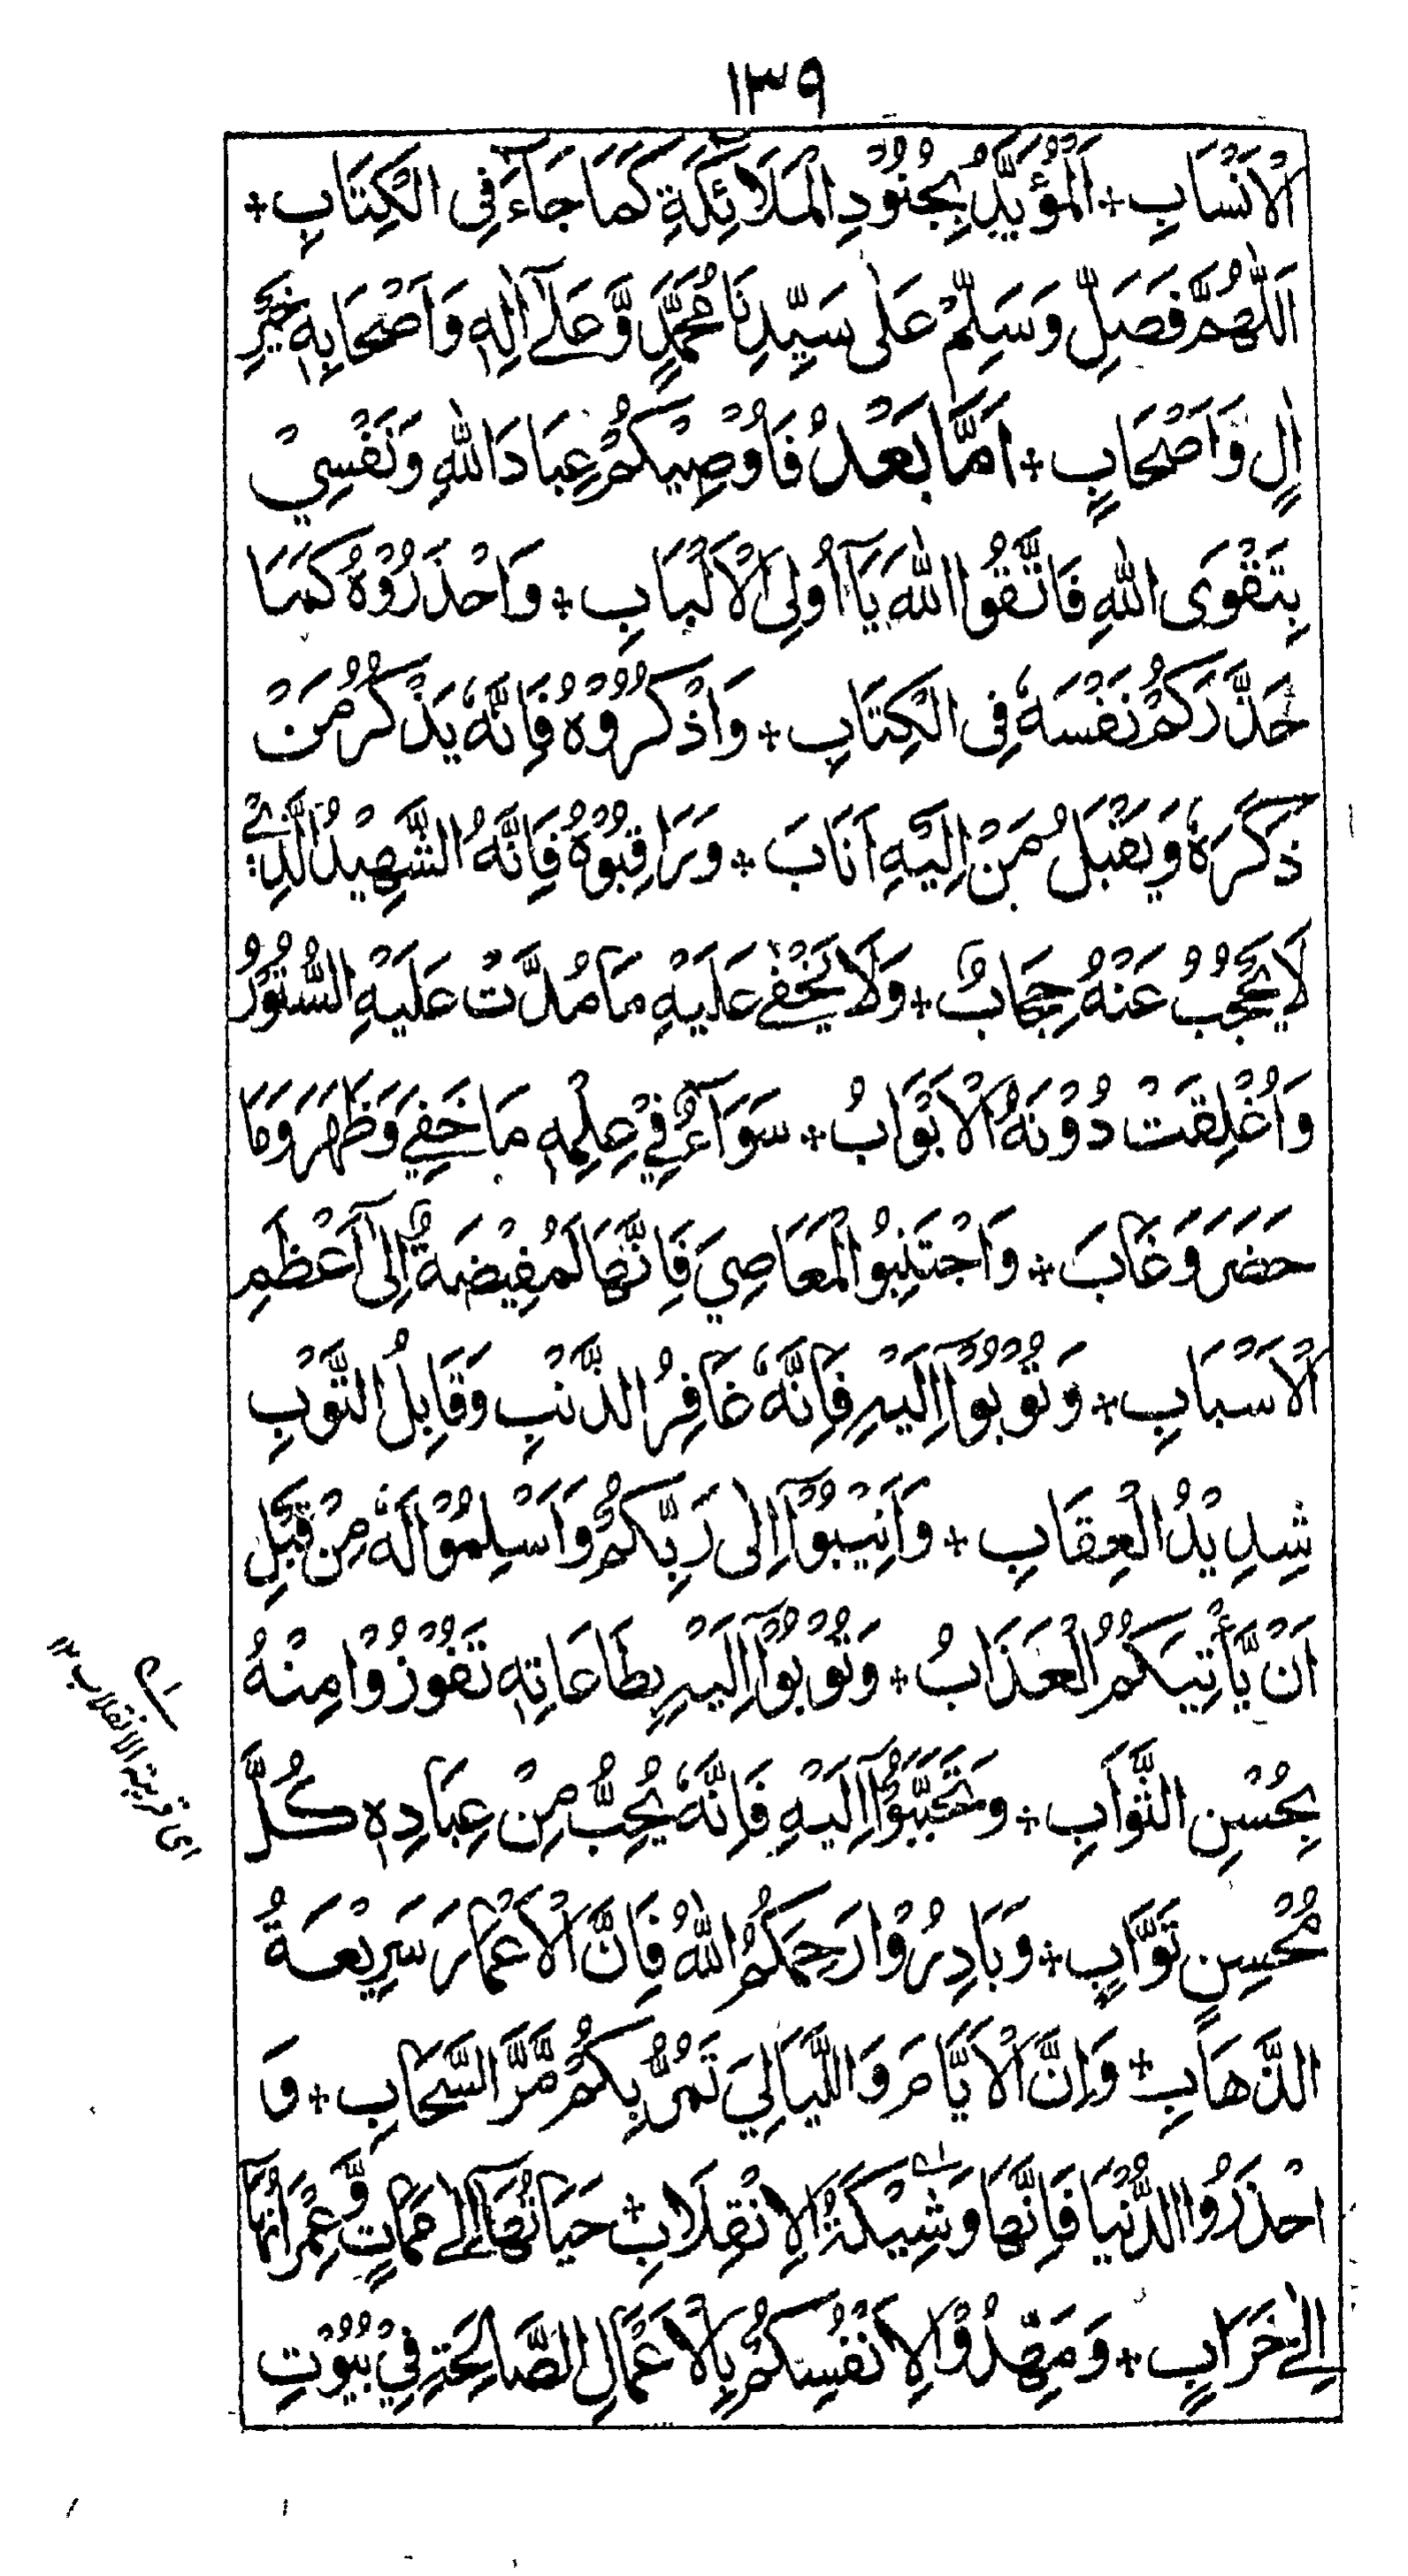 ١٣٩
الْاَنْسَابِ + اَلْمُؤَيَّدُ بِجُنُوْدِ الْمَلَائِكَةِ كَمَا جَآءَ فِى الْكِتَابِ +
اَللّٰهُمَّ فَصَلِّ وَسَلِّمْ عَلٰى سَيِّدِنَا مُحَمَّدٍ وَّعَلٰٓى اٰلِهٖ وَاَصْحَابِهٖ خَيْرِ
اٰلٍ وَاَصْحَابٍ + اَمَّا بَعْدُ فَاُوْصِيْكُمْ عِبَادَ اللّٰهِ وَنَفْسِيْ
بِتَقْوَى اللّٰهِ فَاتَّقُوا اللّٰهَ يَآ اُولِى الْاَلْبَابِ + وَاحْذَرُوْهُ كَمَا
حَذَّرَكُمْ نَفْسَهٗ فِى الْكِتَابِ + وَاذْكُرُوْهُ فَاِنَّهٗ يَذْكُرُ مَنْ
ذَكَرَهٗ وَيَقْبَلُ مَنْ اِلَيْهِ اَنَابَ + وَرَاقِبُوْهُ فَاِنَّهُ الشَّهِيْدُ الَّذِيْ
لَا يَحْجُبُ عَنْهُ حِجَابٌ + وَلَا يَخْفٰى عَلَيْهِ مَا مُدَّتْ عَلَيْهِ السُّتُوْرُ
وَاُغْلِقَتْ دُوْنَهُ الْاَبْوَابُ + سَوَآءٌ فِيْ عِلْمِهٖ مَا خَفِيَ وَظَهَرَ وَمَا
حَضَرَ وَغَابَ + وَاجْتَنِبُوا الْمَعَاصِيَ فَاِنَّهَا لَمُفِيْضَةٌ اِلٰٓى اَعْظَمِ
الْاَسْبَابِ + وَتُوْبُوْٓا اِلَيْهِ فَاِنَّهٗ غَافِرُ الذَّنْبِ وَقَابِلُ التَّوْبِ
شَدِيْدُ الْعِقَابِ + وَاَنِيْبُوْٓا اِلٰى رَبِّكُمْ وَاَسْلِمُوْا لَهٗ مِنْ قَبْلِ
اَنْ يَّأْتِيَكُمُ الْعَذَابُ + وَتُوْبُوْٓا اِلَيْهِ بِطَاعَاتِهٖ تَفُوْزُوْا مِنْهُ
بِحُسْنِ الثَّوَابِ + وَتَحَبَّبُوْٓا اِلَيْهِ فَاِنَّهٗ يُحِبُّ مِنْ عِبَادِهٖ كُلَّ
مُحْسِنٍ تَوَّابٍ + وَبَادِرُوْا رَحِمَكُمُ اللّٰهُ فَاِنَّ الْاَعْمَارَ سَرِيْعَةُ
الذَّهَابِ + وَاِنَّ الْاَيَّامَ وَاللَّيَالِيَ تَمُرُّ بِكُمْ مَّرَّ السَّحَابِ + وَ
احْذَرُوا الدُّنْيَا فَاِنَّهَا وَشِيْكَةُ الْاِنْقِلَابِ + حَيَاتُهَآ اِلٰى مَمَاتٍ وَّعِمْرَانُهَا
اِلٰى خَرَابٍ + وَمَهِّدُوْا لِاَنْفُسِكُمْ بِالْاَعْمَالِ الصَّالِحَةِ فِيْ بُيُوْتِ
اى قريبة الانقلاب ١٢